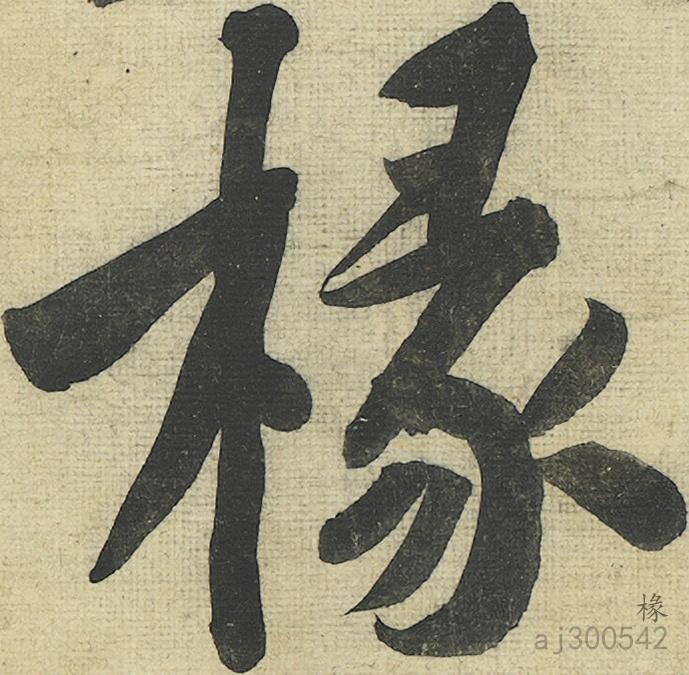 椽
椽
aj300542